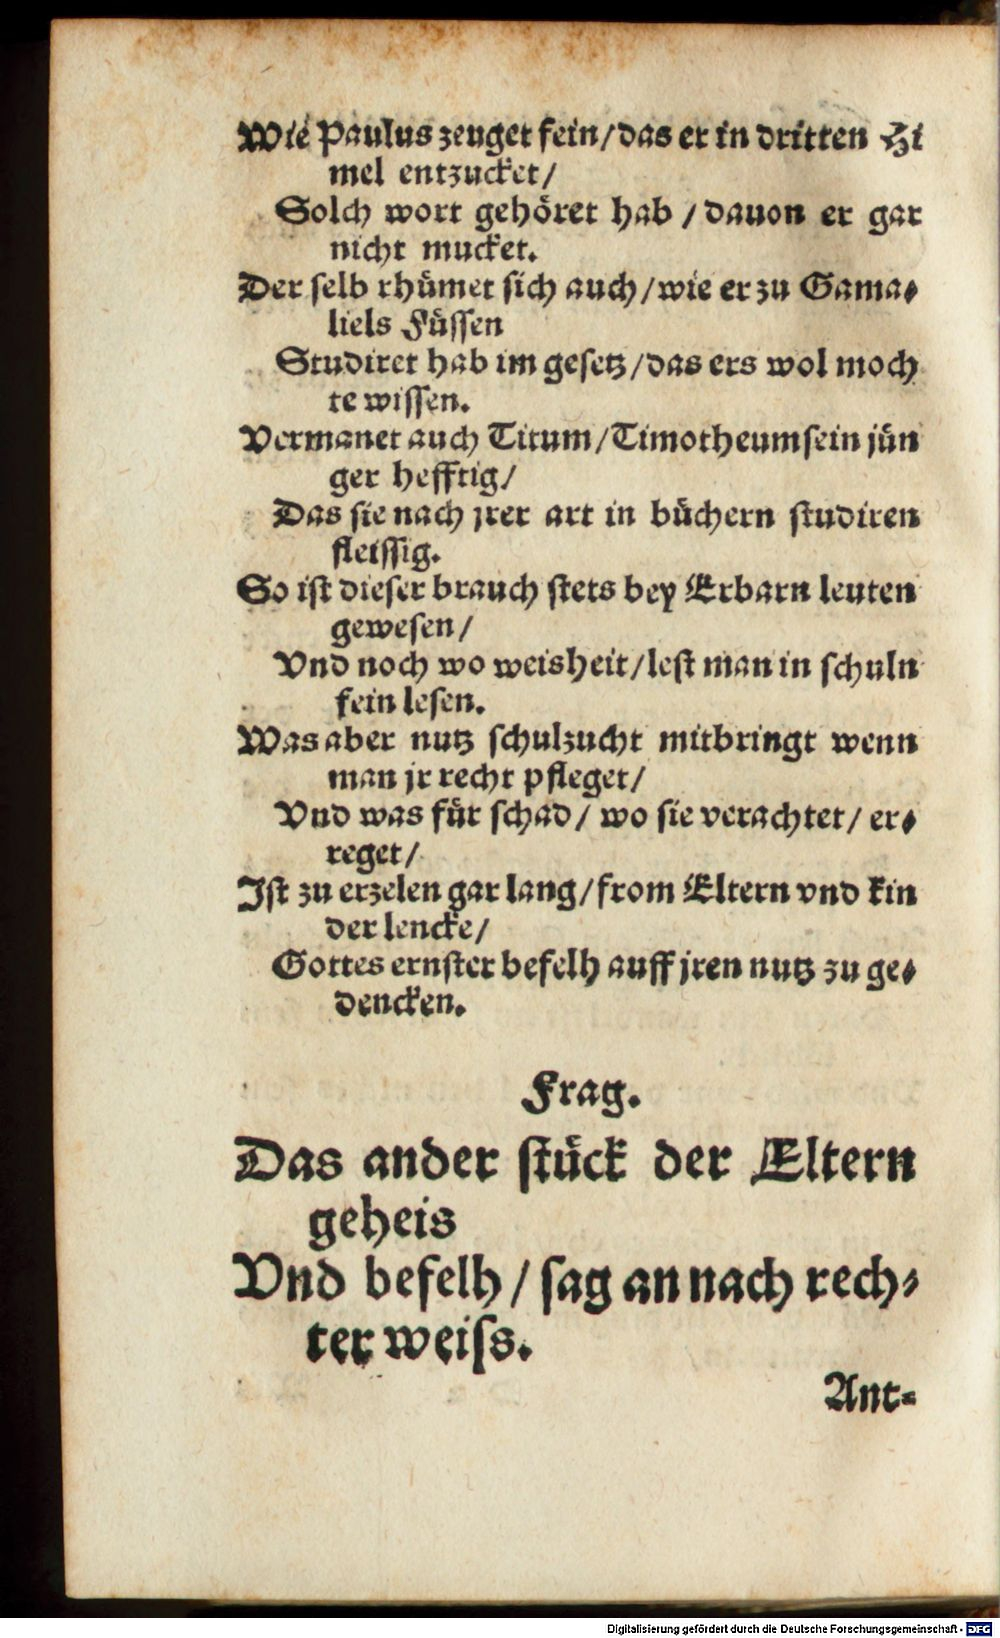 Wie Paulus zeuget fein/das er in dritten Hi
mel entzucket/
Solch wort gehöret hab / dauon er gar
nicht mucket.
Der selb rhümet sich auch/wie er zu Gama-
liels Füssen
Studiret hab im gesetz/das ers wol moch
te wissen.
Vermanet auch Titum/Timotheum sein jün
ger hefftig/
Das sie nach jrer art in büchern studiren
fleissig.
So ist dieser brauch stets bey Erbarn leuten
gewesen/
Vnd noch wo weisheit/lest man in schuln
fein lesen.
Was aber nutz schulzucht mitbringt wenn
man jr recht pfleget/
Vnd was für schad/ wo sie verachtet/ er-
reget/
Ist zu erzelen gar lang/from Eltern vnd kin
der lencke/
Gottes ernster befelh auff jren nutz zu ge-
dencken.
Frag.
Das ander stück der Eltern
geheis
Vnd befelh/ sag an nach rech-
ter weiss.
Ant-
Digitalisierung gefördert durch die Deutsche Forschungsgemeinschaft - DFG